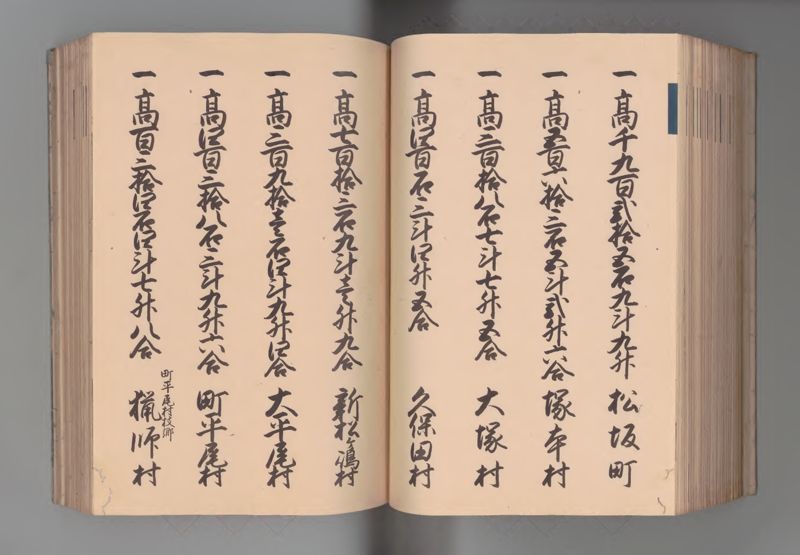 一 高千九百弐拾五石九斗九升 松坂町
一 高五百六拾三石五斗弐升六合 塚本村
一 高三百拾八石七斗七升五合 大塚村
一 高四百石三斗四升五合 久保田村
一 高七百拾三石九斗壱升九合 新松ヶ嶋村
一 高三百九拾壱石四斗九升四合 大平尾村
一 高四百三拾八石三斗九升六合 町平尾村
町平尾村枝郷
一 高百三拾四石四斗七升八合 猟師村